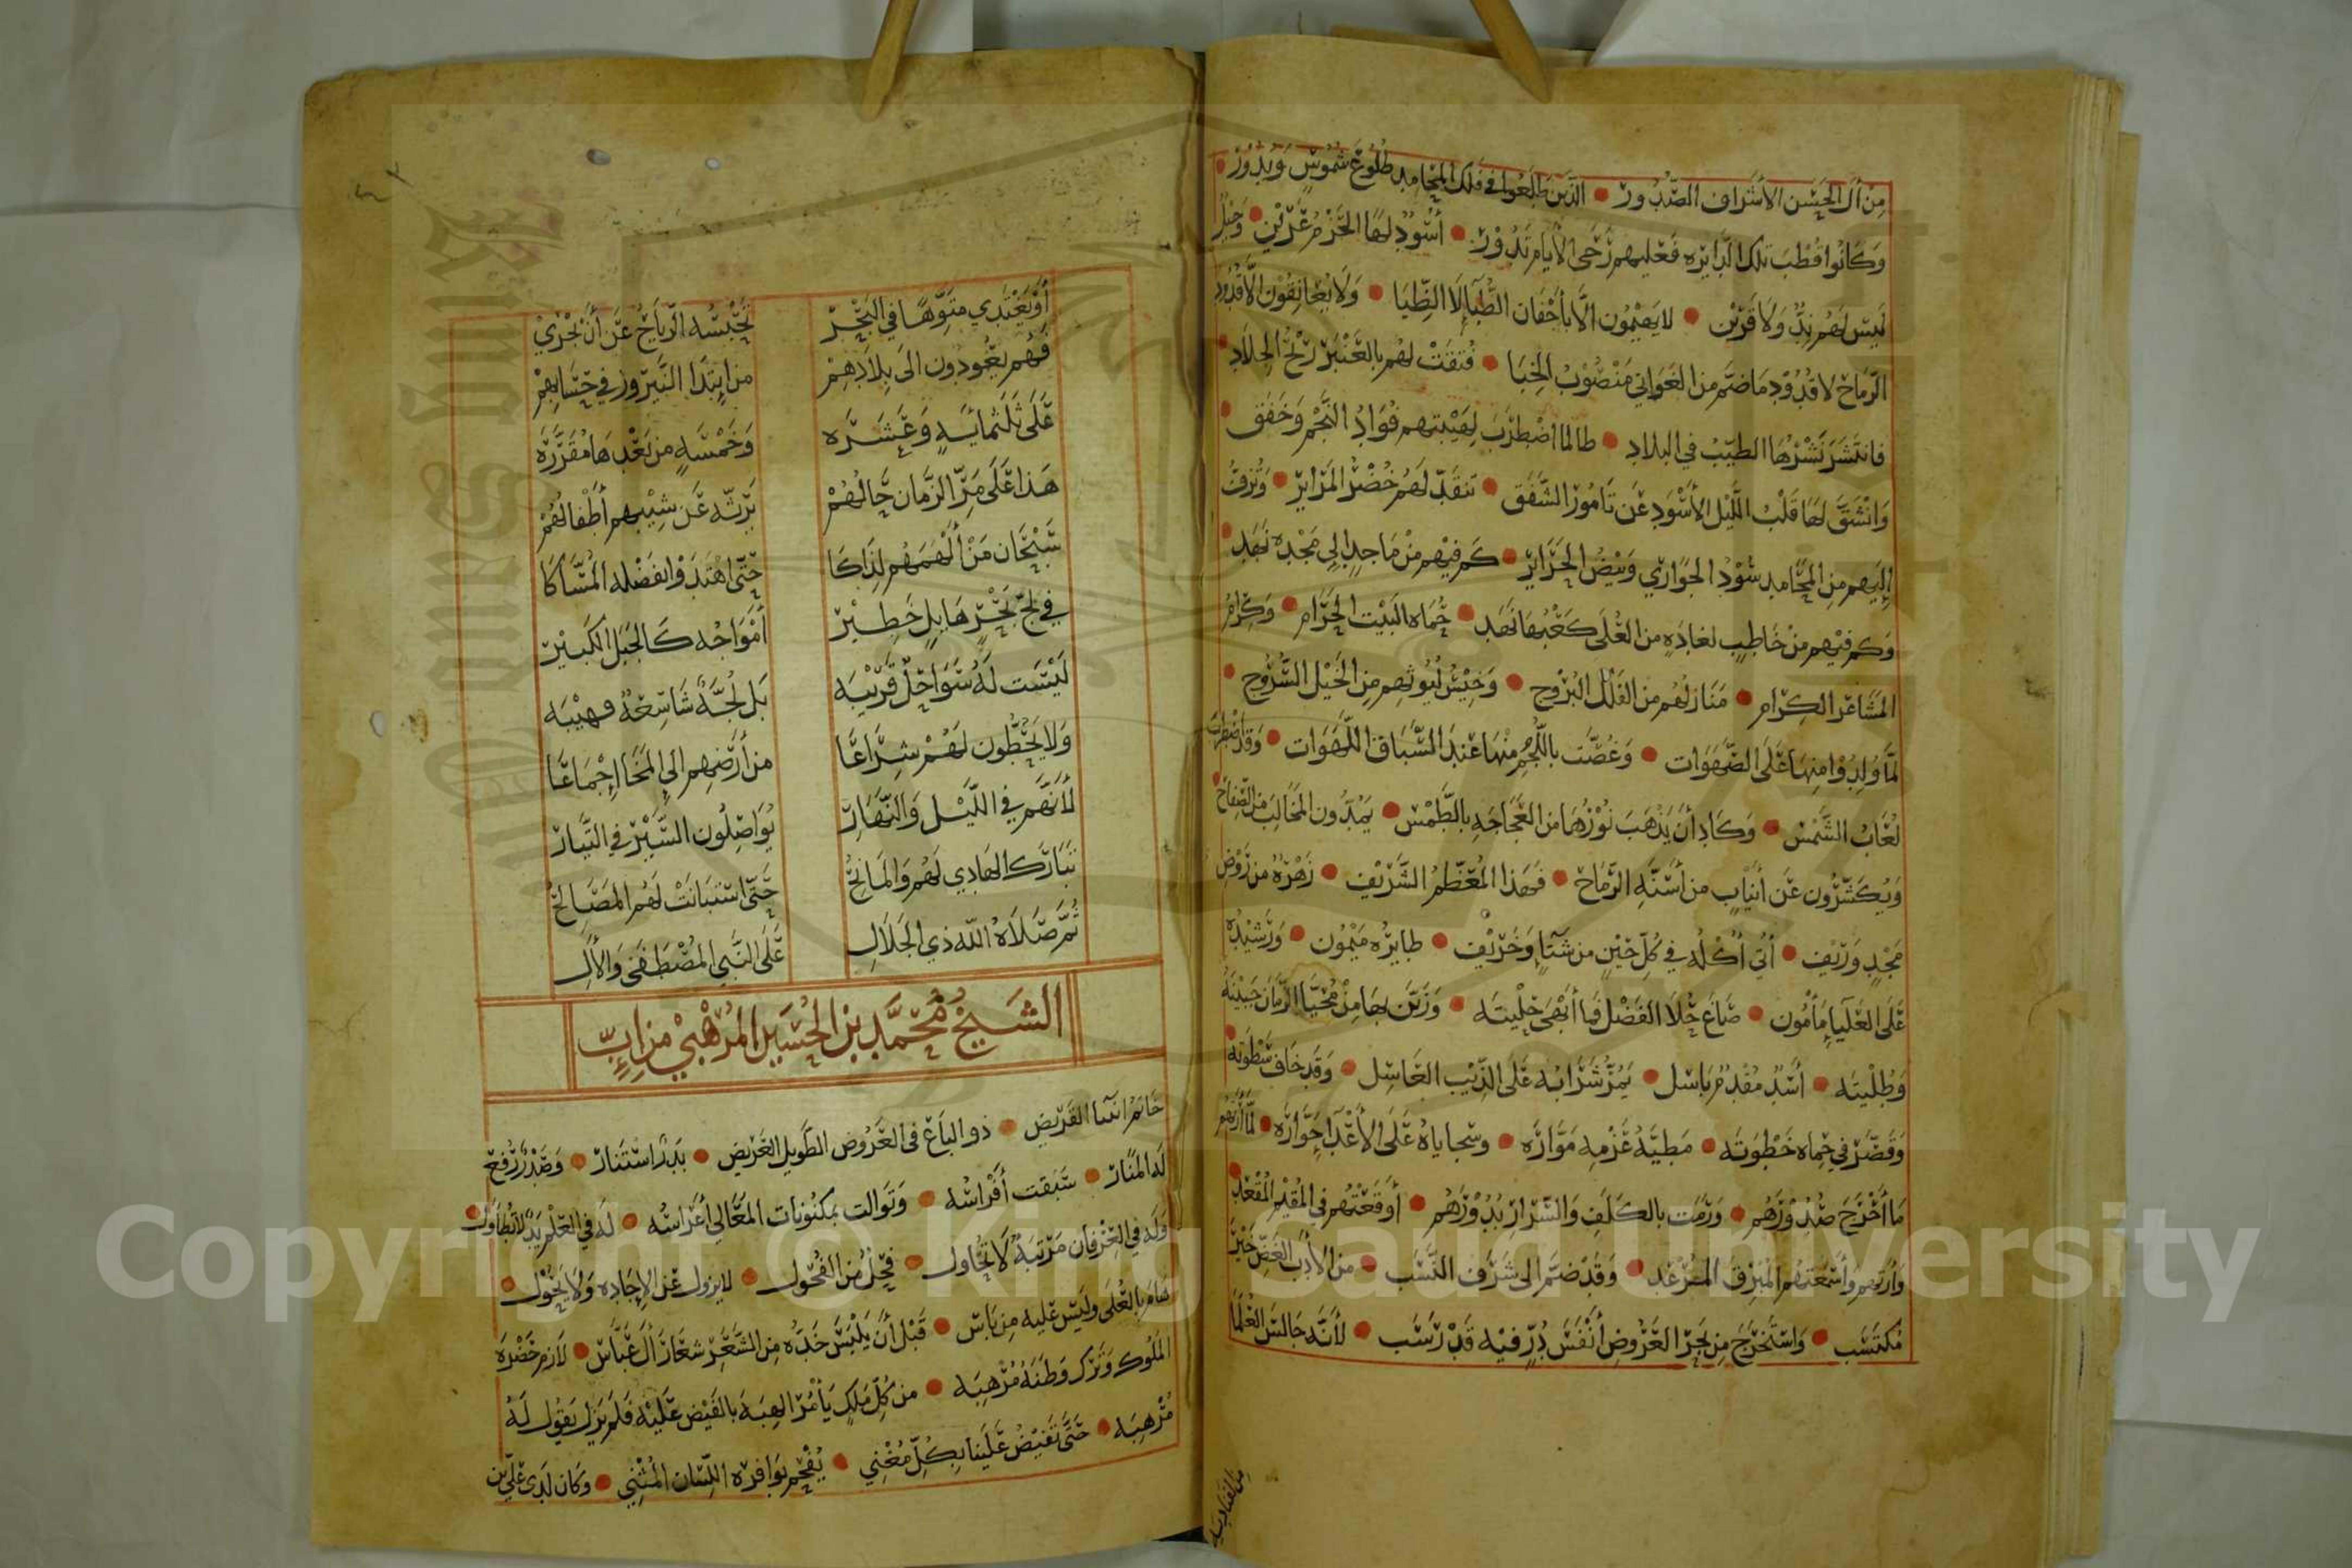 من آل الحسن الأشراف الصدور • الذين طلعوا في فلك المحامد طلوع شموس وبدور •
وكانوا قطب تلك الدايره فعليهم رحى الأيام تدور • أسود لها الحزم عرين •
ليس لهم ند ولا قرين • لا يهيمون الا بأجفان الظبا لا الظبا • ولا يعانقون الا قدود
الرماح لا قدود ما ضم من الغواني منصوب الخبا • فتقت لهم بالعنبر ريح الجلاد •
فانتشر نشرها الطيب في البلاد • طالما اضطرب لهيبتهم فؤاد النجم وخفق •
وانشق لها قلب الليل الأسود عن تامور الشفق • تنقد لهم خضر المزاير • وتزف
إليهم من المحامد سود الجواري وبيض الحراير • كم فيهم من ماجد إلى مجده نهد •
وكم فيهم من خاطب لغادة من العلى كعبها نهد • حماه البيت الحرام • وكرام
المشاعر الكرام • منازلهم من الفلك البروج • وحيش ليوثهم من الخيل السروج •
لما ولدوا منها على الصهوات • وغصت باللجم منها عند السباق اللهوات • وقد اضطرب
لعاب الشمس • وكاد أن يذهب نورها من العجاجه بالطمس • يمدون المخالب من الصفاح •
ويكشرون عن أنياب من أسنة الرماح • فهذا المعظم الشريف • زهرة من روض
مجد وريف • أتي أكله في كل حين من شتاء وخريف • طايره ميمون • ورشيده
على العليا مأمون • صاغ حلا الفضل فما أبهى حليته • وزين بها من محيا الزمان جبينه
وطليته • أسد مقدم باسل • يمز شرابه على الذيب العاسل • وقد خاف سطوته
وقصر في حماه خطوته • مطية عزمه موارة • وسجاياه على الأعدا جوارة • لما أزهم
ما أخرج صدورهم • ورمت بالكلف والسرار بدورهم • أوقعتهم في المقيم المقعد
وأرتهم وأسمعتهم المبرق المرعد • وقد ضم الى شرف النسب • من الأدب الغض خير
مكتسب • واستخرج من بحر العروض أنفس در فيه قد رسب • لأنه جالس العلما
أو يعتدي متوها في البحر    تحبسه الرياح عن أن يجري
فهم يعودون الى بلادهم    من إبتدا النيروز في حسابهم
على ثلثمائة وعشره    وخمسة من بعدها مقررة
هذا على مر الزمان حالهم    يرثه عن شيبهم أطفالهم
سبحان من ألهمهم لذاكا    حتى اهتدوا بفضله المساكا
في لج بحر هايل خطير    أمواجه كالجبل الكبير
ليست له سواحل قريبه    بل لجة شاسعة مهيبه
ولا يحطون لهم شراعا    من أرضهم الى المخا إجماعا
لأنهم في الليل والنهار    يواصلون السير في التيار
تبارك الهادي لهم والمانح    حتى استبانت لهم المصالح
ثم صلاة الله ذي الجلال    على النبي المصطفى والآل
الشيخ محمد بن الحسين المرهبي من إب
خاتم انسا القريض • ذو الباع في العروض الطويل العريض • بدر استنار • وصدر رفع
له المنار • سبقت أفراسه • وتوالت بمكنونات المعالي أعراسه • له في العلم يد لا تطاول •
وله في العرفان مرتبة لا تحاول • فحل من الفحول • لا يزول عن الإجاده ولا يحول •
هام بالعلى وليس عليه من باس • قبل أن يلبس خده من الشعر شعار آل عباس • لازم حضرة
الملوك وترك وطنه مرهبه • من كل ملك يأمر الهبه بالفيض عليه فلم يزل يقول له
مرهبه • حتى تفيض علينا بكل مغني • يفحم بوافره اللسان المثني • وكان لدى علي بن